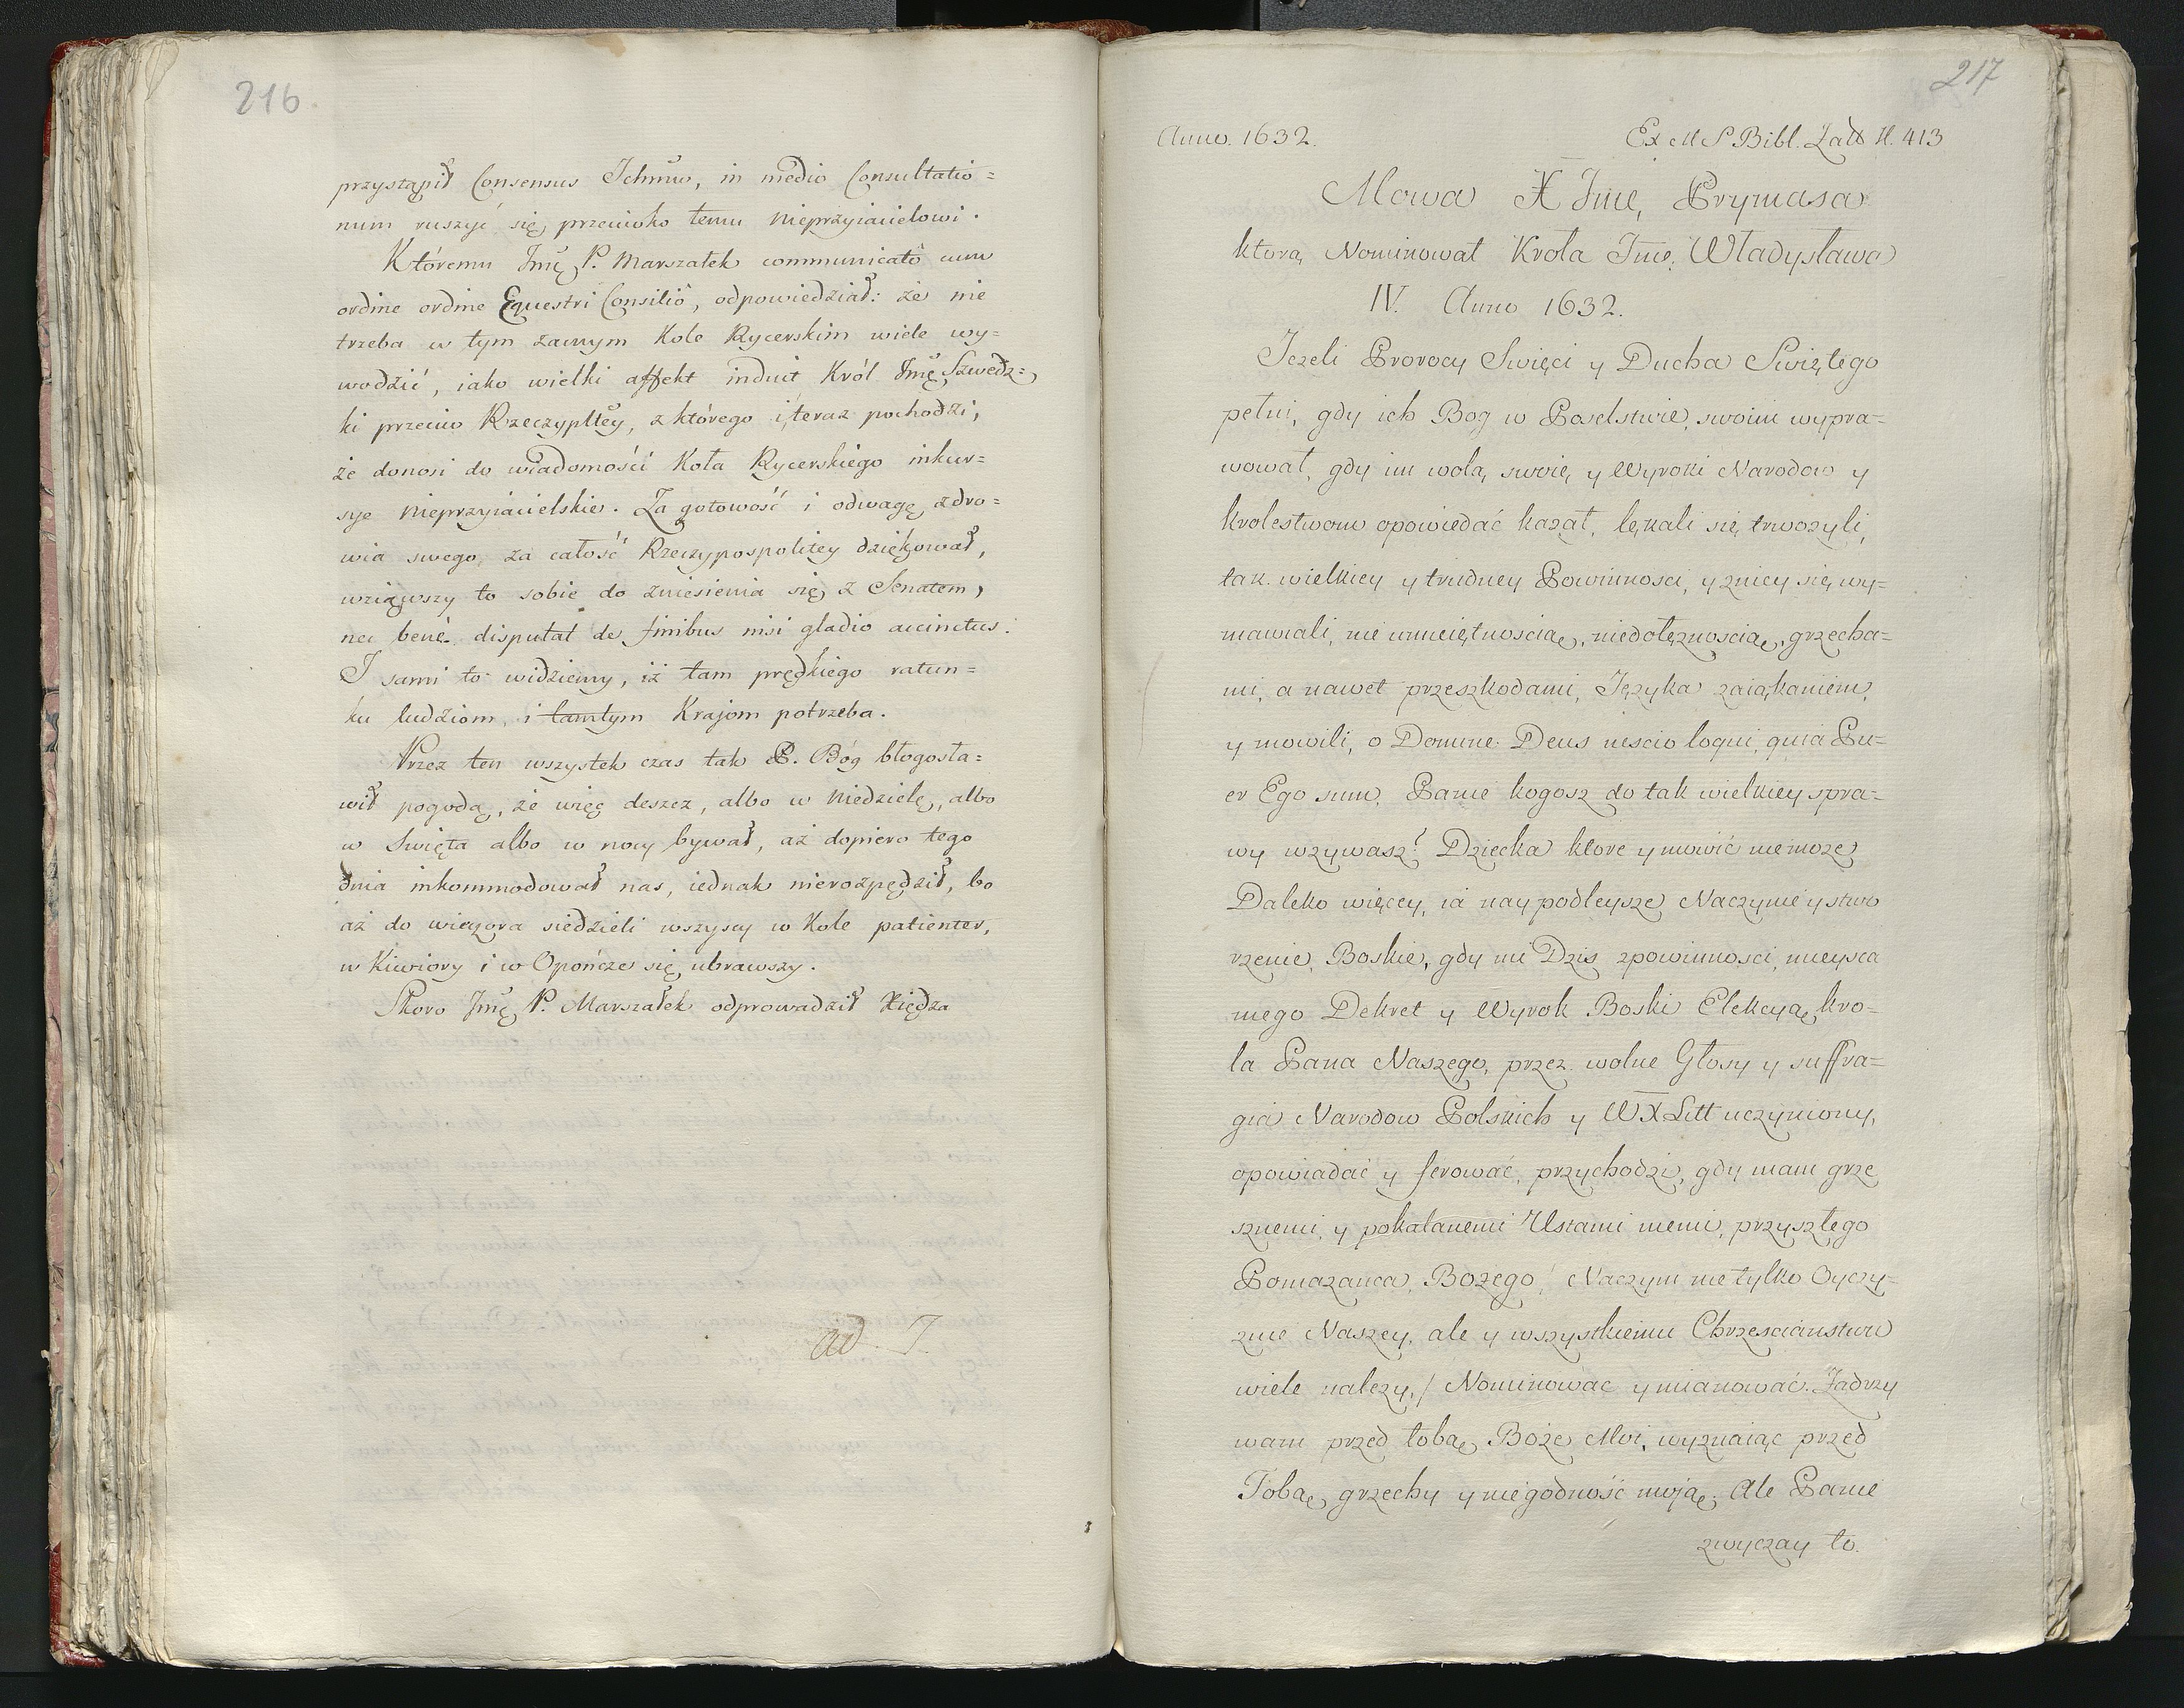 216.
przystąpił Consensus Ichmw, in medio Consultatio=
num ruszyć się przeciwko temu nieprzyiacielowi.
Któremu Jmę P. Marszałek communicato cum
ordine ordine Equestri Consilió, odpowiedział: że nie
trzeba w tym zacnym Kole Rycerskim wiele wy=
wodzić, iako wielki affekt induit Król Jmę Szwedz=
ki przeciw Rzeczypltey, z którego i teraz pochodzi,
że donosi do wiadomości Koła Rycerskiego inkur=
sye nieprzyiacielskie. Za gotowość i odwagę zdro=
wia swego za całość Rzeczypospolitey dziękował,
wziąwszy to sobie do zniesienia się z Senatem,
nec bené disputat de finibus nisi gladio accinctus.
I sami to widziemy, iż tam prędkiego ratun=
ku ludziom, i tamtym Krajom potrzeba.
Przez ten wszystek czas tak P. Bóg błogosła=
wił pogodą, że więc deszcz, albo w niedzielę, albo
w Swięta albo w nocy bywał, aż dopiero tego
dnia inkommodował nas, iednak nierozpędził, bo
aż do wieczora siedzieli wszyscy w Kole patienter,
w Kiwiory i w Opończe się ubrawszy.
Skoro Jmę P. Marszałek odprowadził Xiędza
ad J.
217
Anno. 1632.
Ex MS Bibl. Zał H. 413
Mowa X Jme Prymasa
ktorą Nominował Krola Jme Władysława
IV. Anno 1632.
Jezeli Prorocy Swięci y Ducha Swiętego
pełni, gdy ich Bog w Poselstwie swoim wypra=
wował, gdy im wolą swoię y Wyroki Narodow y
krolestwom opowiedać kazał, lękali się trwozyli,
tak wielkiey y trudney Powinnosci, y zniey się wy=
mawiali, nie umieiętnoscią, niedołęznoscią, grzecha=
mi, a nawet przeszkodami, Języka zaiąkaniem,
y mowili, o Domine Deus nescio loqui, quia Pu=
er Ego sum. Panie kogosz do tak wielkiey spra=
wy wzywasz? Dziecka ktore y mowić niemoze
Daleko więcey, ia naypodleysze Naczynie y stwo
rzenie Boskie, gdy mi Dzis zpowinnosci, mieysca
mego Dekret y Wyrok Boski Elekcyą kro=
la Pana Naszego, przez wolne Głosy y suffra=
gia Narodow Polskich y WX Litt uczyniony,
opowiadać y ferować, przychodzi, gdy mam grze
sznemi, y pokalanemi Ustami memi, przyszłego
Pomazanca Bozego / Naczym nie tylko Oyczy=
znie Naszey, ale y wszystkiemu Chrzescianstwu
wiele nalezy, / Nominować y mianować. Zadrzy
wam przed tobą Boże Moi, wyznaiąc przed
Tobą grzechy y niegodność moją; Ale Panie
zwyczay to.